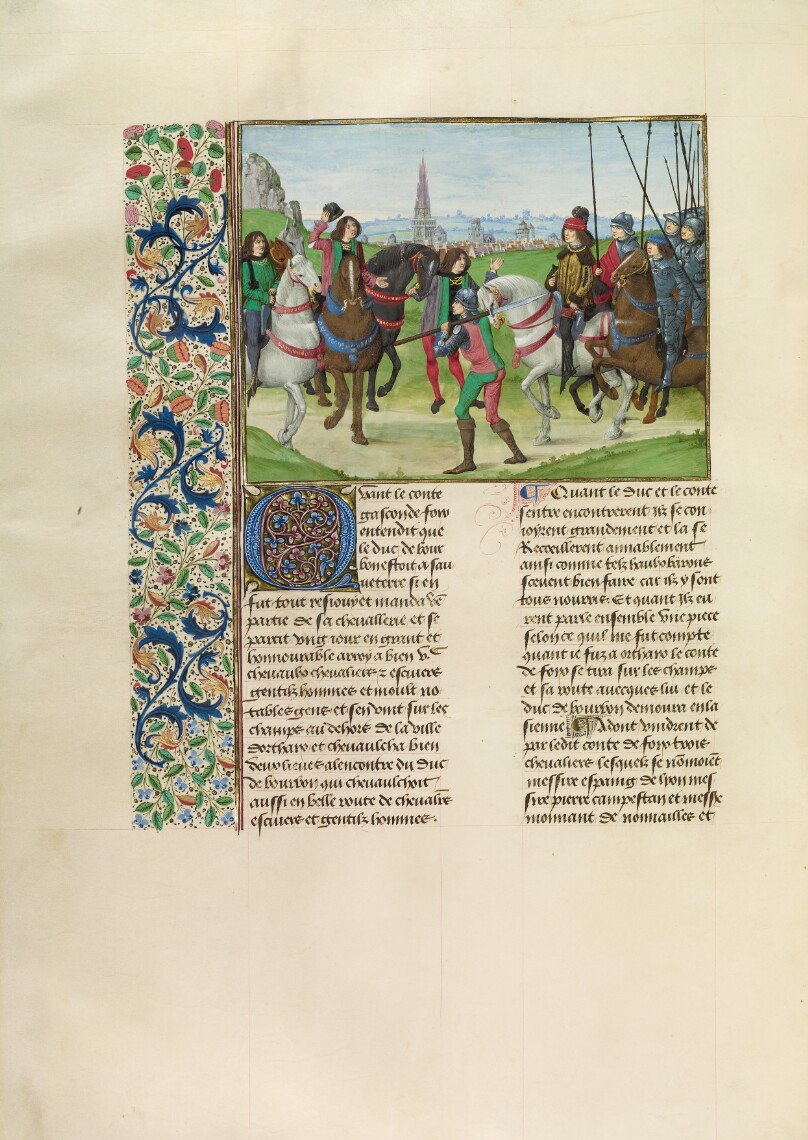 Quant le conte
gasconde foix
entendit que
le duc de bour
bon estoit a sau
ueterre si en
fut tout resiouy et manda
partie de sa cheuallerie et se
partit vng iour en grant et
honnourable arroy a bien
cheuaulx cheualiers z escuiers
gentilz hommes et moult no
tables gens et sen vint sur les
champs au dehors de la ville
dorthais et cheuaulcha bien
deux lieues alencontre du duc
de bourbon qui cheuaulchoit
aussi en belle route de cheualiers
escuiers et gentilz hommes.
Quant le duc et le conte
sentre encontrerent ilz se con
ioyrent grandement et la se
Recoeillerent amiablement
ainsi comme telz haulx barons
sceuent bien faire car ilz y sont
tous nourris. Et quant ilz eu
rent parle ensemble vne piece
selonce quil me fut compte
quant ie fuz a orthais le conte
de foix se tira sur les champs
et sa route auecques lui et le
duc de bourbon demoura en la
sienne Adont vindrent de
par ledit conte de foix trois
cheualiers lesquelz se nommoient
messire espaing de lyon mes
sire pierre campestan et messire
monnant de nonnailles et